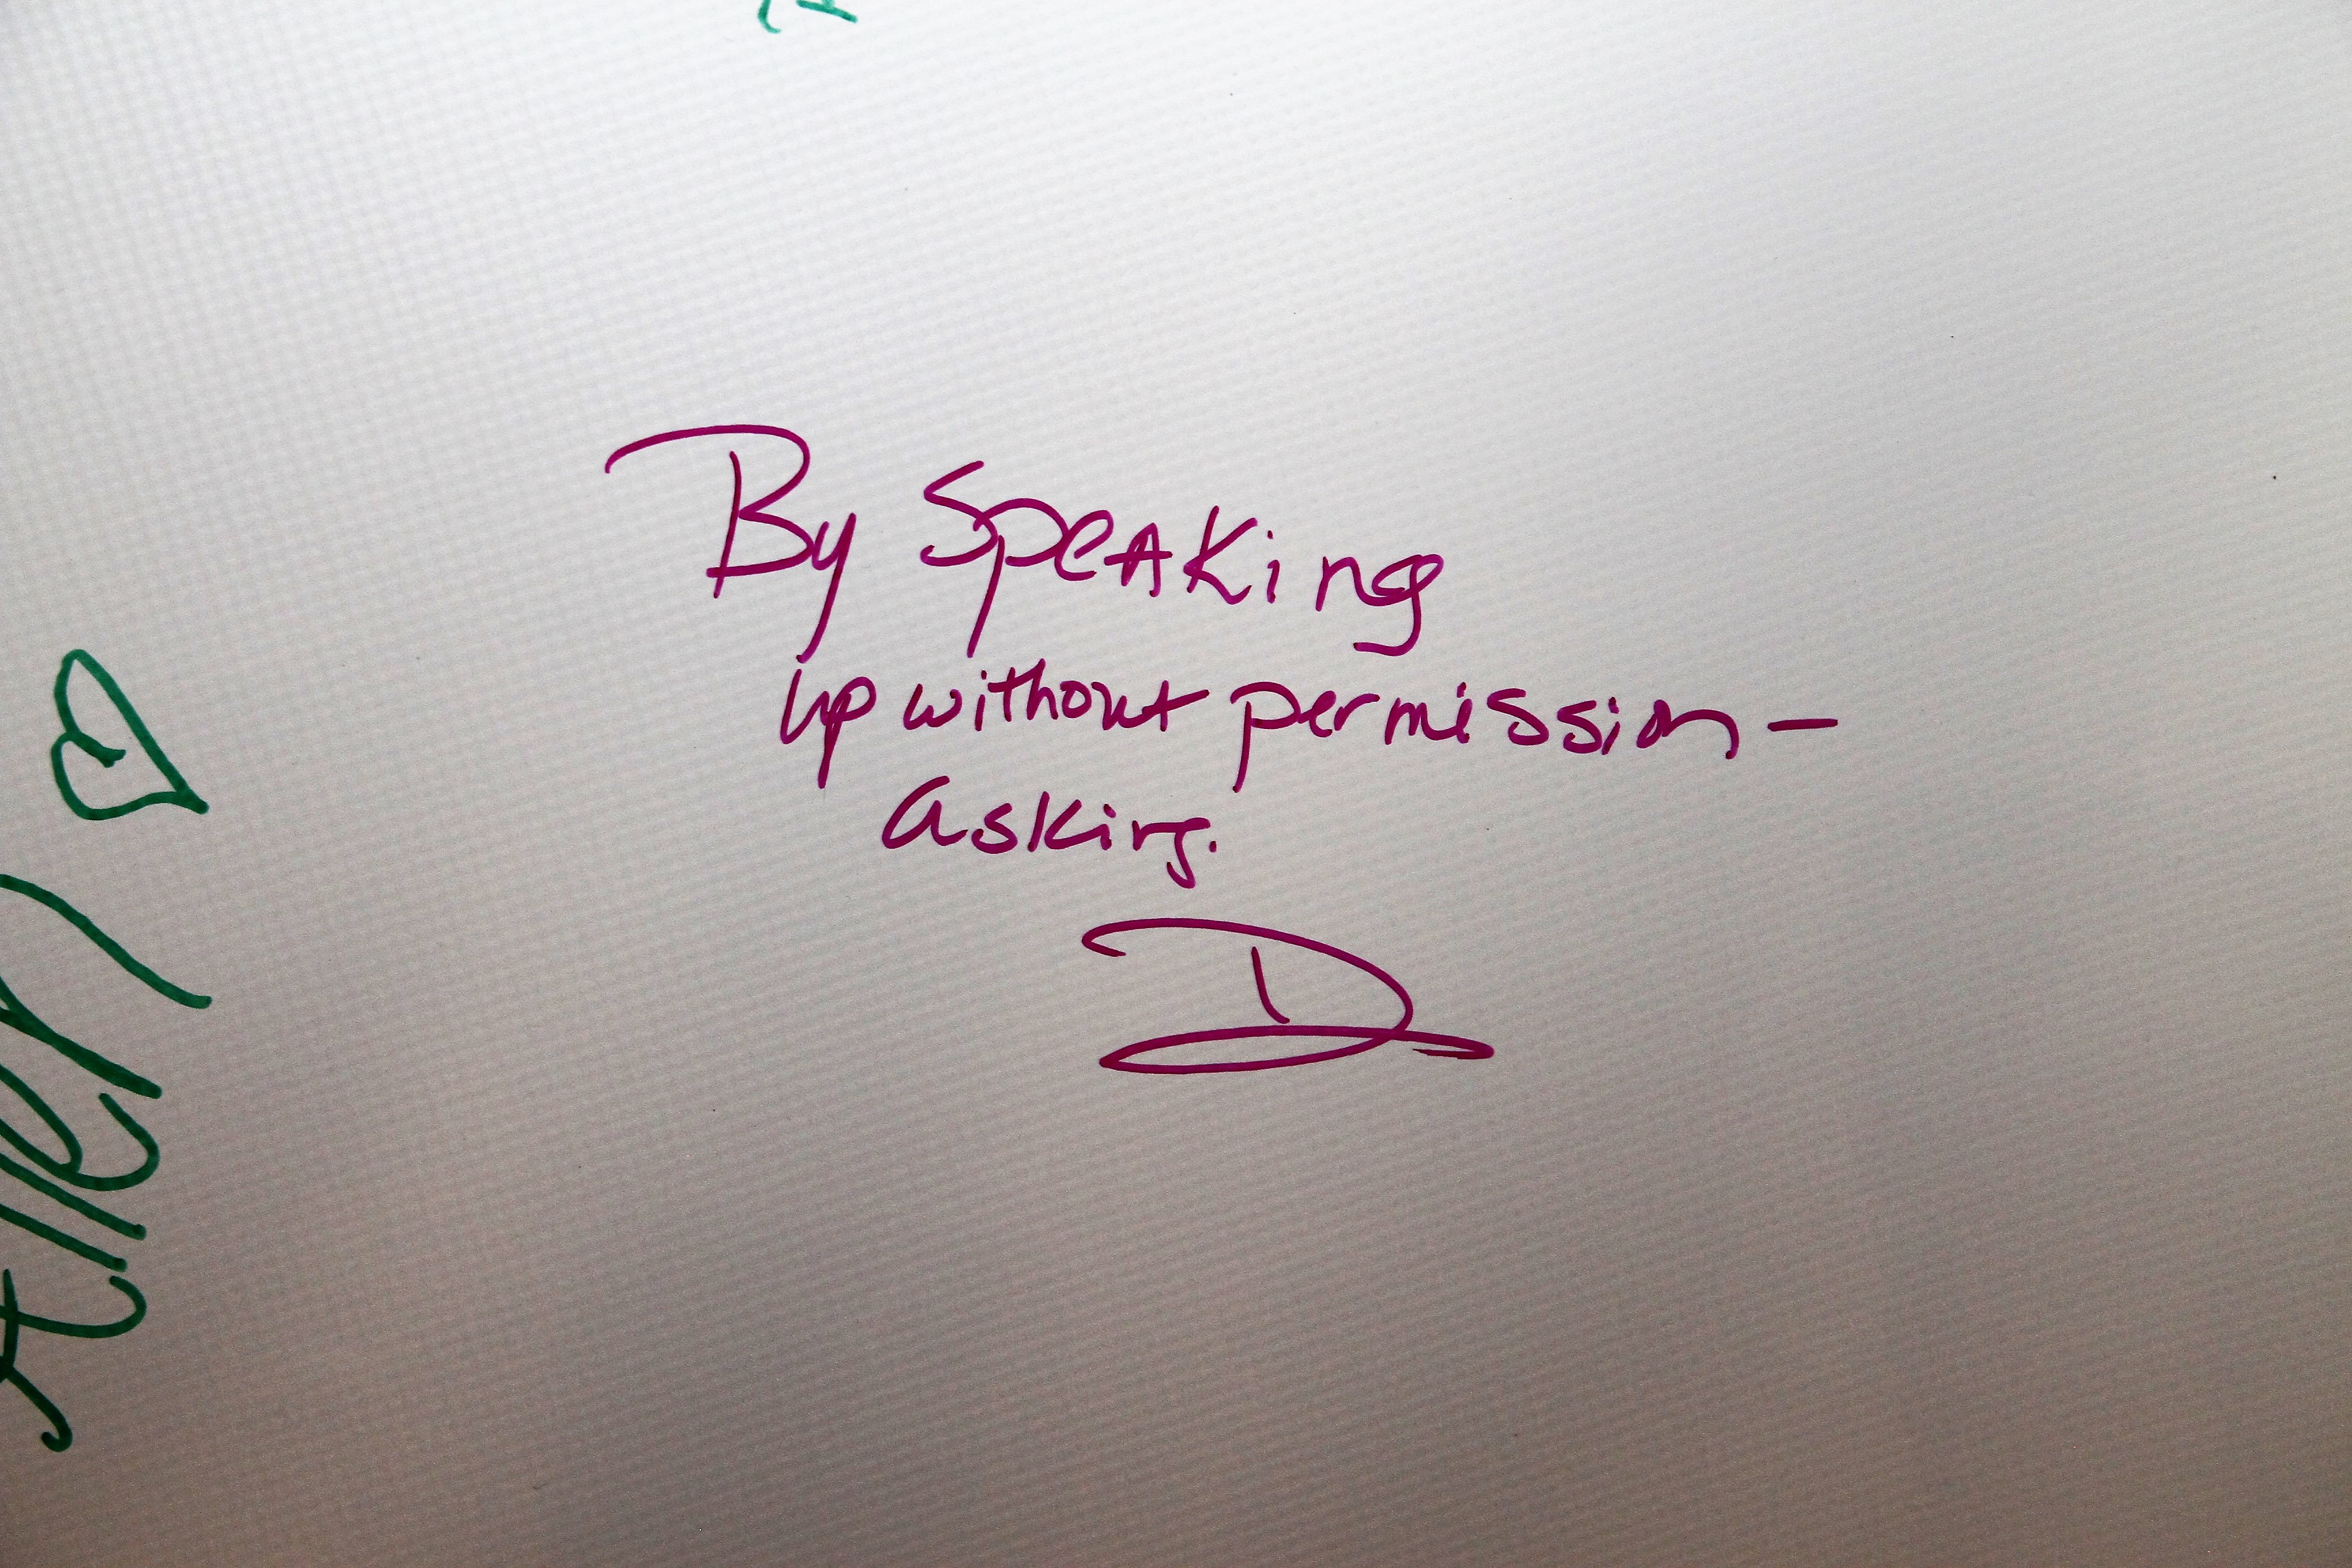 By Speaking
up without permission –
asking.
D